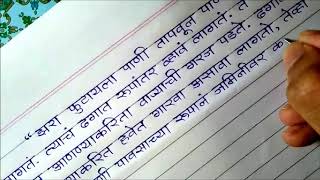 "झरा फुटायला पाणी तापवून पाणी
लागतं. त्याचं ढगात रूपांतर व्हावं लागतं. त
आणण्याकरिता वाऱ्याची गरज पडते. ढगा
याकरिता हवेत गारवा असावा लागतो, तेव्हा
णी पावसाच्या रूपानं जमिनीवर क